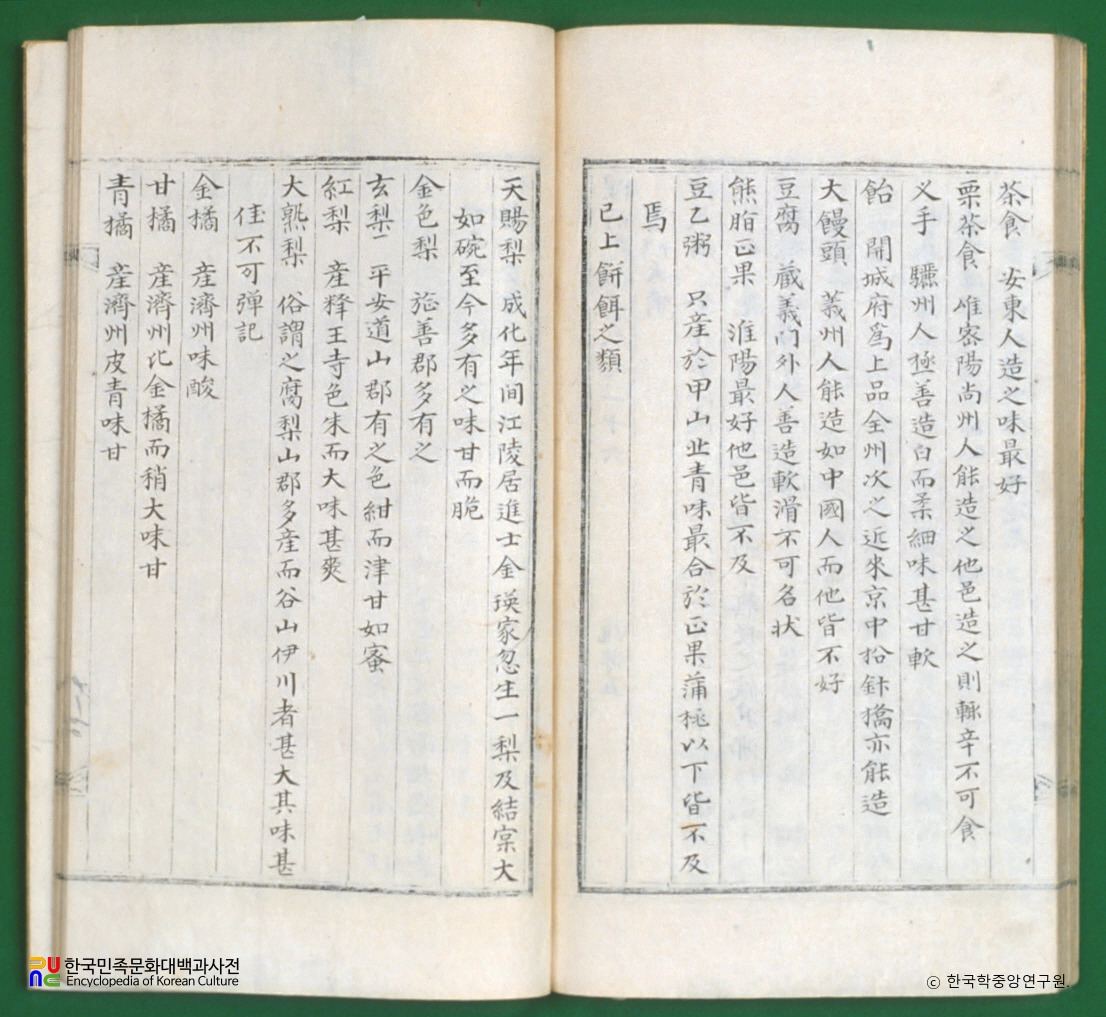 茶食 安東人造之味最好
栗茶食 惟密陽尚州人能造之他邑造之則輙辛不可食
义手 驪州人極善造白而柔細味甚甘軟
飴 開城府爲上品全州次之近來京中拾餅橋亦能造
大饅頭 義州人能造如中國人而他皆不好
豆腐 藏義门外人善造軟滑不可名状
熊脂正果 淮陽最好他邑皆不及
豆乙粥 只産於甲山北青味最合於正果蒲桃以下皆不及
焉
已上餅餌之類
天賜梨 成化年间江陵居進士金瑛家忽生一梨及結宲大
如碗至今多有之味甘而脆
金色梨 㫌善郡多有之
玄梨 平安道山郡有之色紺而津甘如蜜
紅梨 産释王寺色朱而大味甚爽
大熟梨 俗謂之腐梨山郡多産而谷山伊川者甚大其味甚
佳不可殫記
金橘 産濟州味酸
甘橘 産濟州比金橘而稍大味甘
青橘 産濟州皮青味甘
한국민족문화대백과사전
Encyclopedia of Korean Culture
© 한국학중앙연구원.